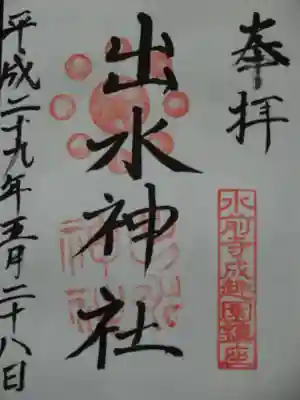 奉拝
水前寺成趣園鎮座
出水神社
平成二十九年五月二十八日